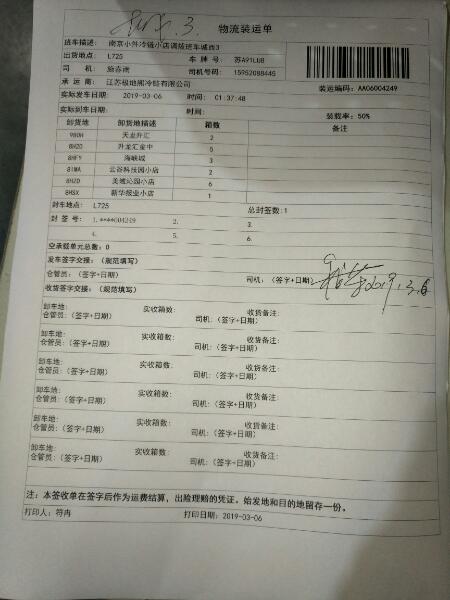 物流装运单
班车描述: 南京小外冷链小店调拨班车城西3
出货地点: L725 车 牌 号: 苏A91LU8
司 机: 施春雨 司机号码: 15952088445
承 运 商: 江苏极地熊冷链有限公司 装运编码: AA06004249
实际发车日期: 2019-03-06 时间: 01:37:48
实际到车日期: 时间: 装载率: 50%
卸货地 卸货地描述 箱数 备注
980H 天龙升汇 2
8H2D 升龙汇金中 5
8HFY 海峡城 3
81MA 云谷科技园小店 2
8HZD 美域沁园小店 6
8HSX 新华报业小店 1
封车地点: L725 总封签数:1
封 签 号: 1.****004249 2. 3.
4. 5. 6.
空承载单元总数: 0
发车签字交接: (规范填写)
仓管员: (签字+日期) 司机: (签字+日期) 2019.3.6
收货签字交接: (规范填写)
卸车地: 实收箱数: 收货备注:
仓管员: (签字+日期) 司机: (签字+日期)
卸车地: 实收箱数: 收货备注:
仓管员: (签字+日期) 司机: (签字+日期)
卸车地: 实收箱数: 收货备注:
仓管员: (签字+日期) 司机: (签字+日期)
卸车地: 实收箱数: 收货备注:
仓管员: (签字+日期) 司机: (签字+日期)
卸车地: 实收箱数: 收货备注:
仓管员: (签字+日期) 司机: (签字+日期)
卸车地: 实收箱数: 收货备注:
仓管员: (签字+日期) 司机: (签字+日期)
注: 本签收单在签字后作为运费结算, 出险理赔的凭证。始发地和目的地留存一份。
打印人: 符冉 打印日期: 2019-03-06